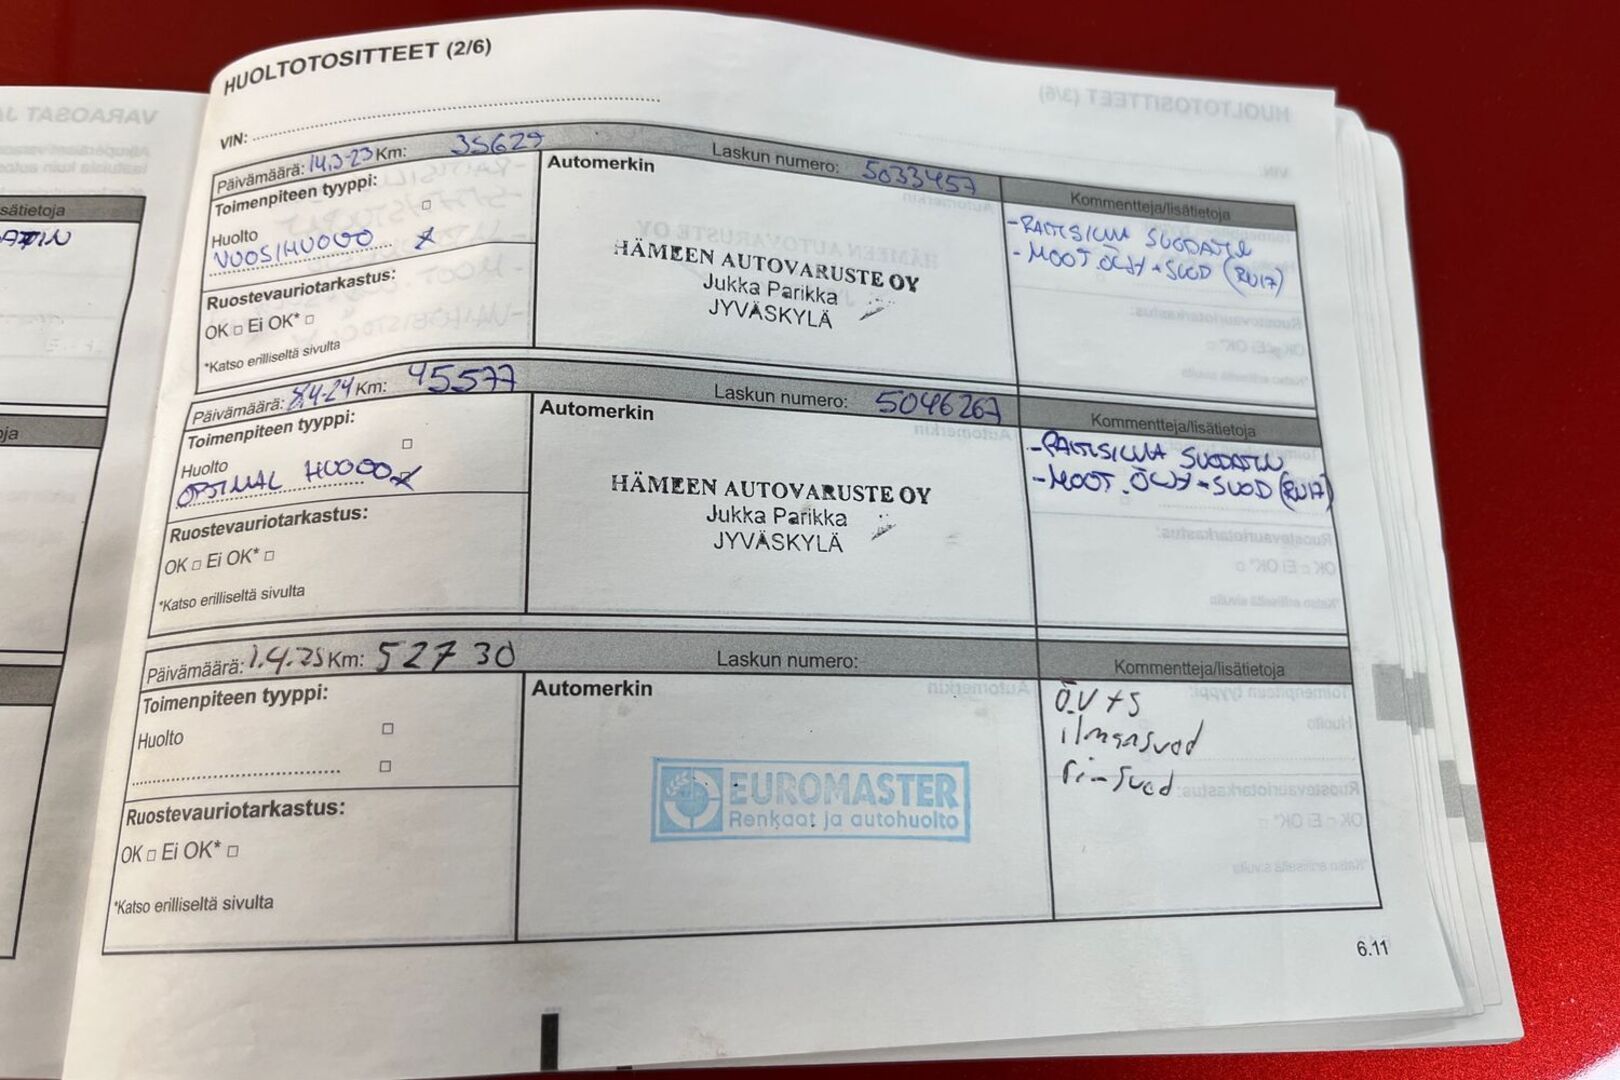 HUOLTOTOSITTEET (2/6)
VIN:
Päivämäärä: 14.3-23 Km: 35629 Laskun numero: 5033457
Toimenpiteen tyyppi:
Huolto
VUOSIHUOLTO x
Ruostevauriotarkastus:
OK □ Ei OK* □
*Katso erilliseltä sivulta
Automerkin
HÄMEEN AUTOVARUSTE OY
Jukka Parikka
JYVÄSKYLÄ
Kommentteja/lisätietoja
- RAITISILMA SUODATIN
- MOOT.ÖLJY + SUOD (RN17)
Päivämäärä: 8.4-24 Km: 45577 Laskun numero: 5046267
Toimenpiteen tyyppi:
Huolto
OPTIMAL HUOLTO x
Ruostevauriotarkastus:
OK □ Ei OK* □
*Katso erilliseltä sivulta
Automerkin
HÄMEEN AUTOVARUSTE OY
Jukka Parikka
JYVÄSKYLÄ
Kommentteja/lisätietoja
- RAITISILMA SUODATIN
- MOOT.ÖLJY + SUOD (RN17)
Päivämäärä: 1.4.25 Km: 52730 Laskun numero:
Toimenpiteen tyyppi:
Huolto
Ruostevauriotarkastus:
OK □ Ei OK* □
*Katso erilliseltä sivulta
Automerkin
EUROMASTER
Renkaat ja autohuolto
Kommentteja/lisätietoja
Ö.V+S
ilmansuod
ri-suod
6.11